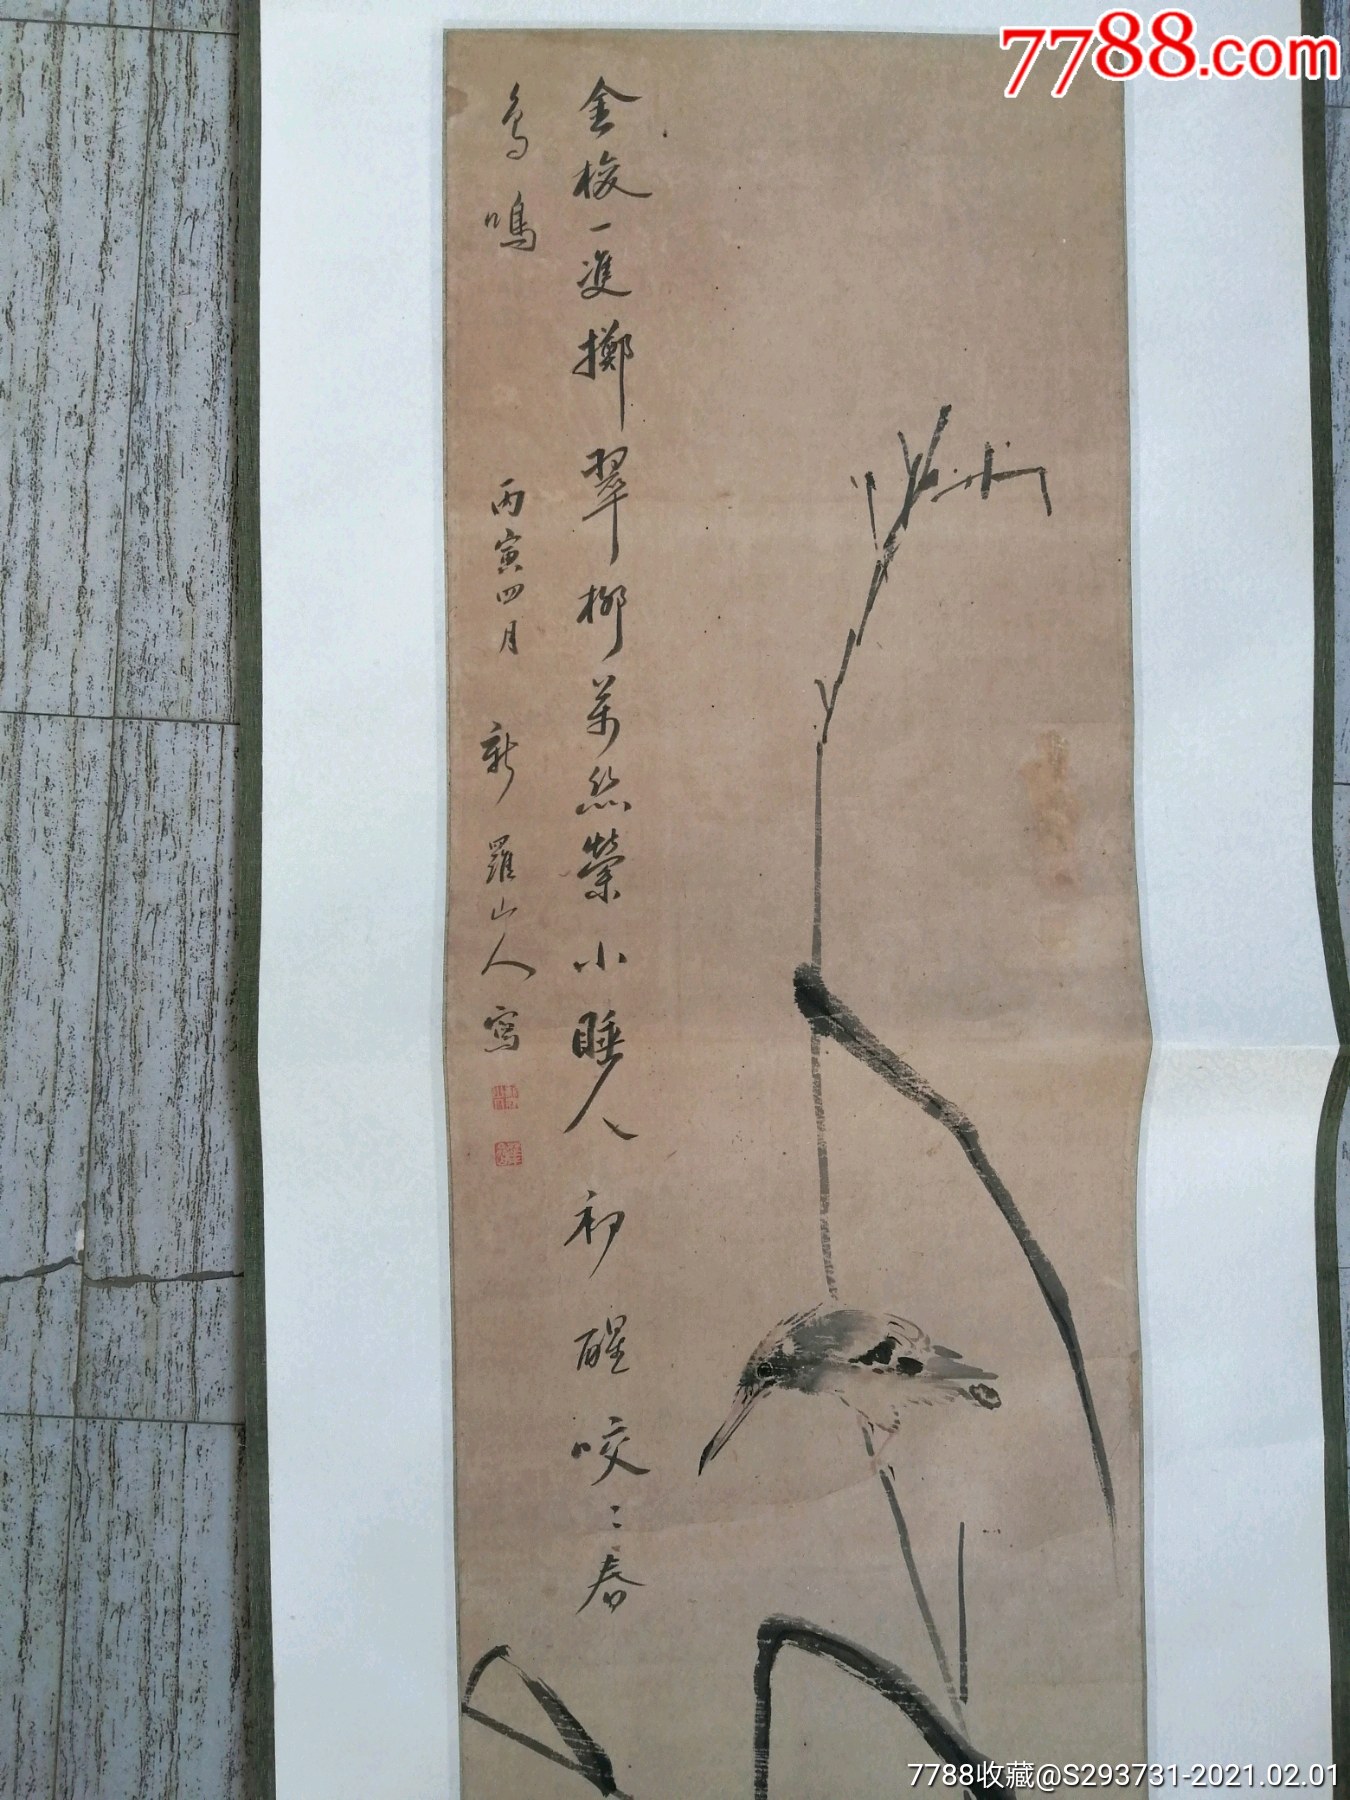 7788.com
金梭一隻擲翠柳萬絲縈小睡人初醒咬〻春
鳥鳴
丙寅四月
新羅山人寫
7788收藏@S293731-2021.02.01